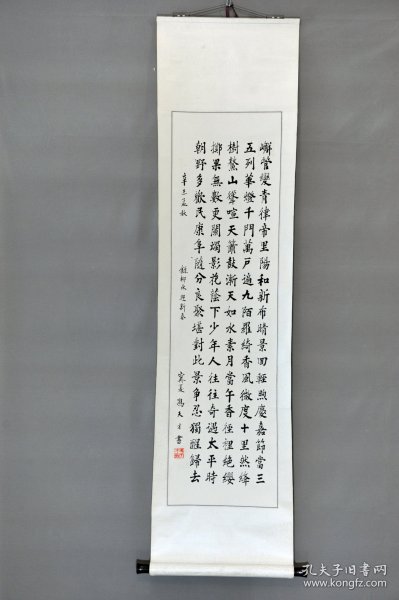 嶰管變青律帝里陽和新布晴景回輕煦慶嘉節當三
五列華燈千門萬戶遍九陌羅綺香風微度十里然絳
樹鰲山聳喧天蕭鼓漸天如水素月當午香徑裡絕纓
擲果無數更闌燭影花蔭下少年人往往奇遇太平時
朝野多歡民康阜隨分良聚堪對此景爭忍獨醒歸去
辛巳 錄柳永迎新春 馮天才書
孔夫子旧书网
www.kongfz.com